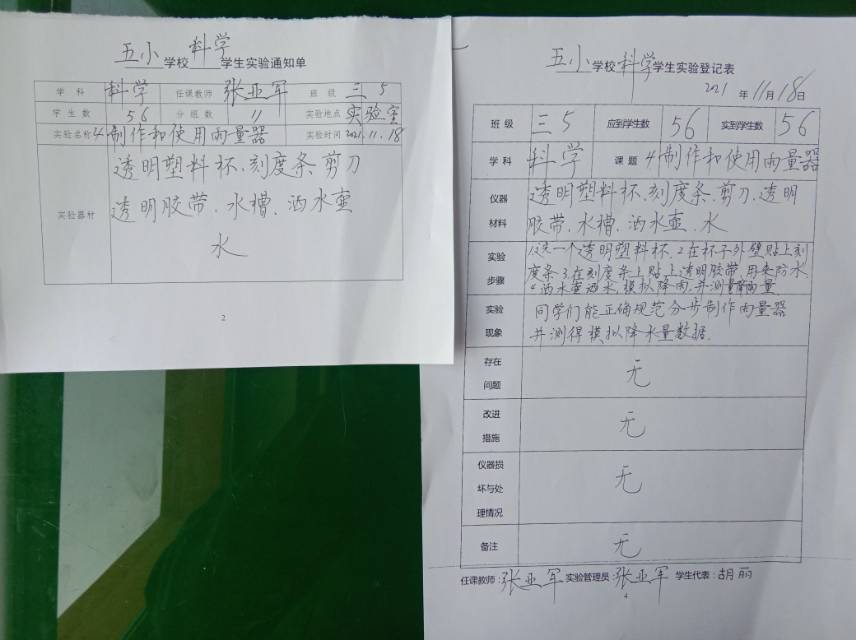 五小学校科学学生实验通知单
学科 科学 任课教师 张亚军 班级 三5
学生数 56 分组数 11 实验地点 实验室
实验名称 4制作和使用雨量器 实验时间 2021.11.18
实验器材
透明塑料杯、刻度条、剪刀
透明胶带、水槽、洒水壶
水
2
五小学校科学学生实验登记表
2021年11月18日
班级 三5 应到学生数 56 实到学生数 56
学科 科学 课题 4制作和使用雨量器
仪器材料
透明塑料杯、刻度条、剪刀、透明
胶带、水槽、洒水壶、水
实验步骤
1.选一个透明塑料杯、2.在杯子外壁贴上刻
度条3.在刻度条上贴上透明胶带用来防水
4.洒水壶洒水,模拟降雨,并测量雨量
实验现象
同学们能正确规范分步制作雨量器
并测得模拟降水量数据.
存在问题 无
改进措施 无
仪器损坏与处理情况 无
备注 无
任课教师:张亚军 实验管理员:张亚军 学生代表:胡丽
4